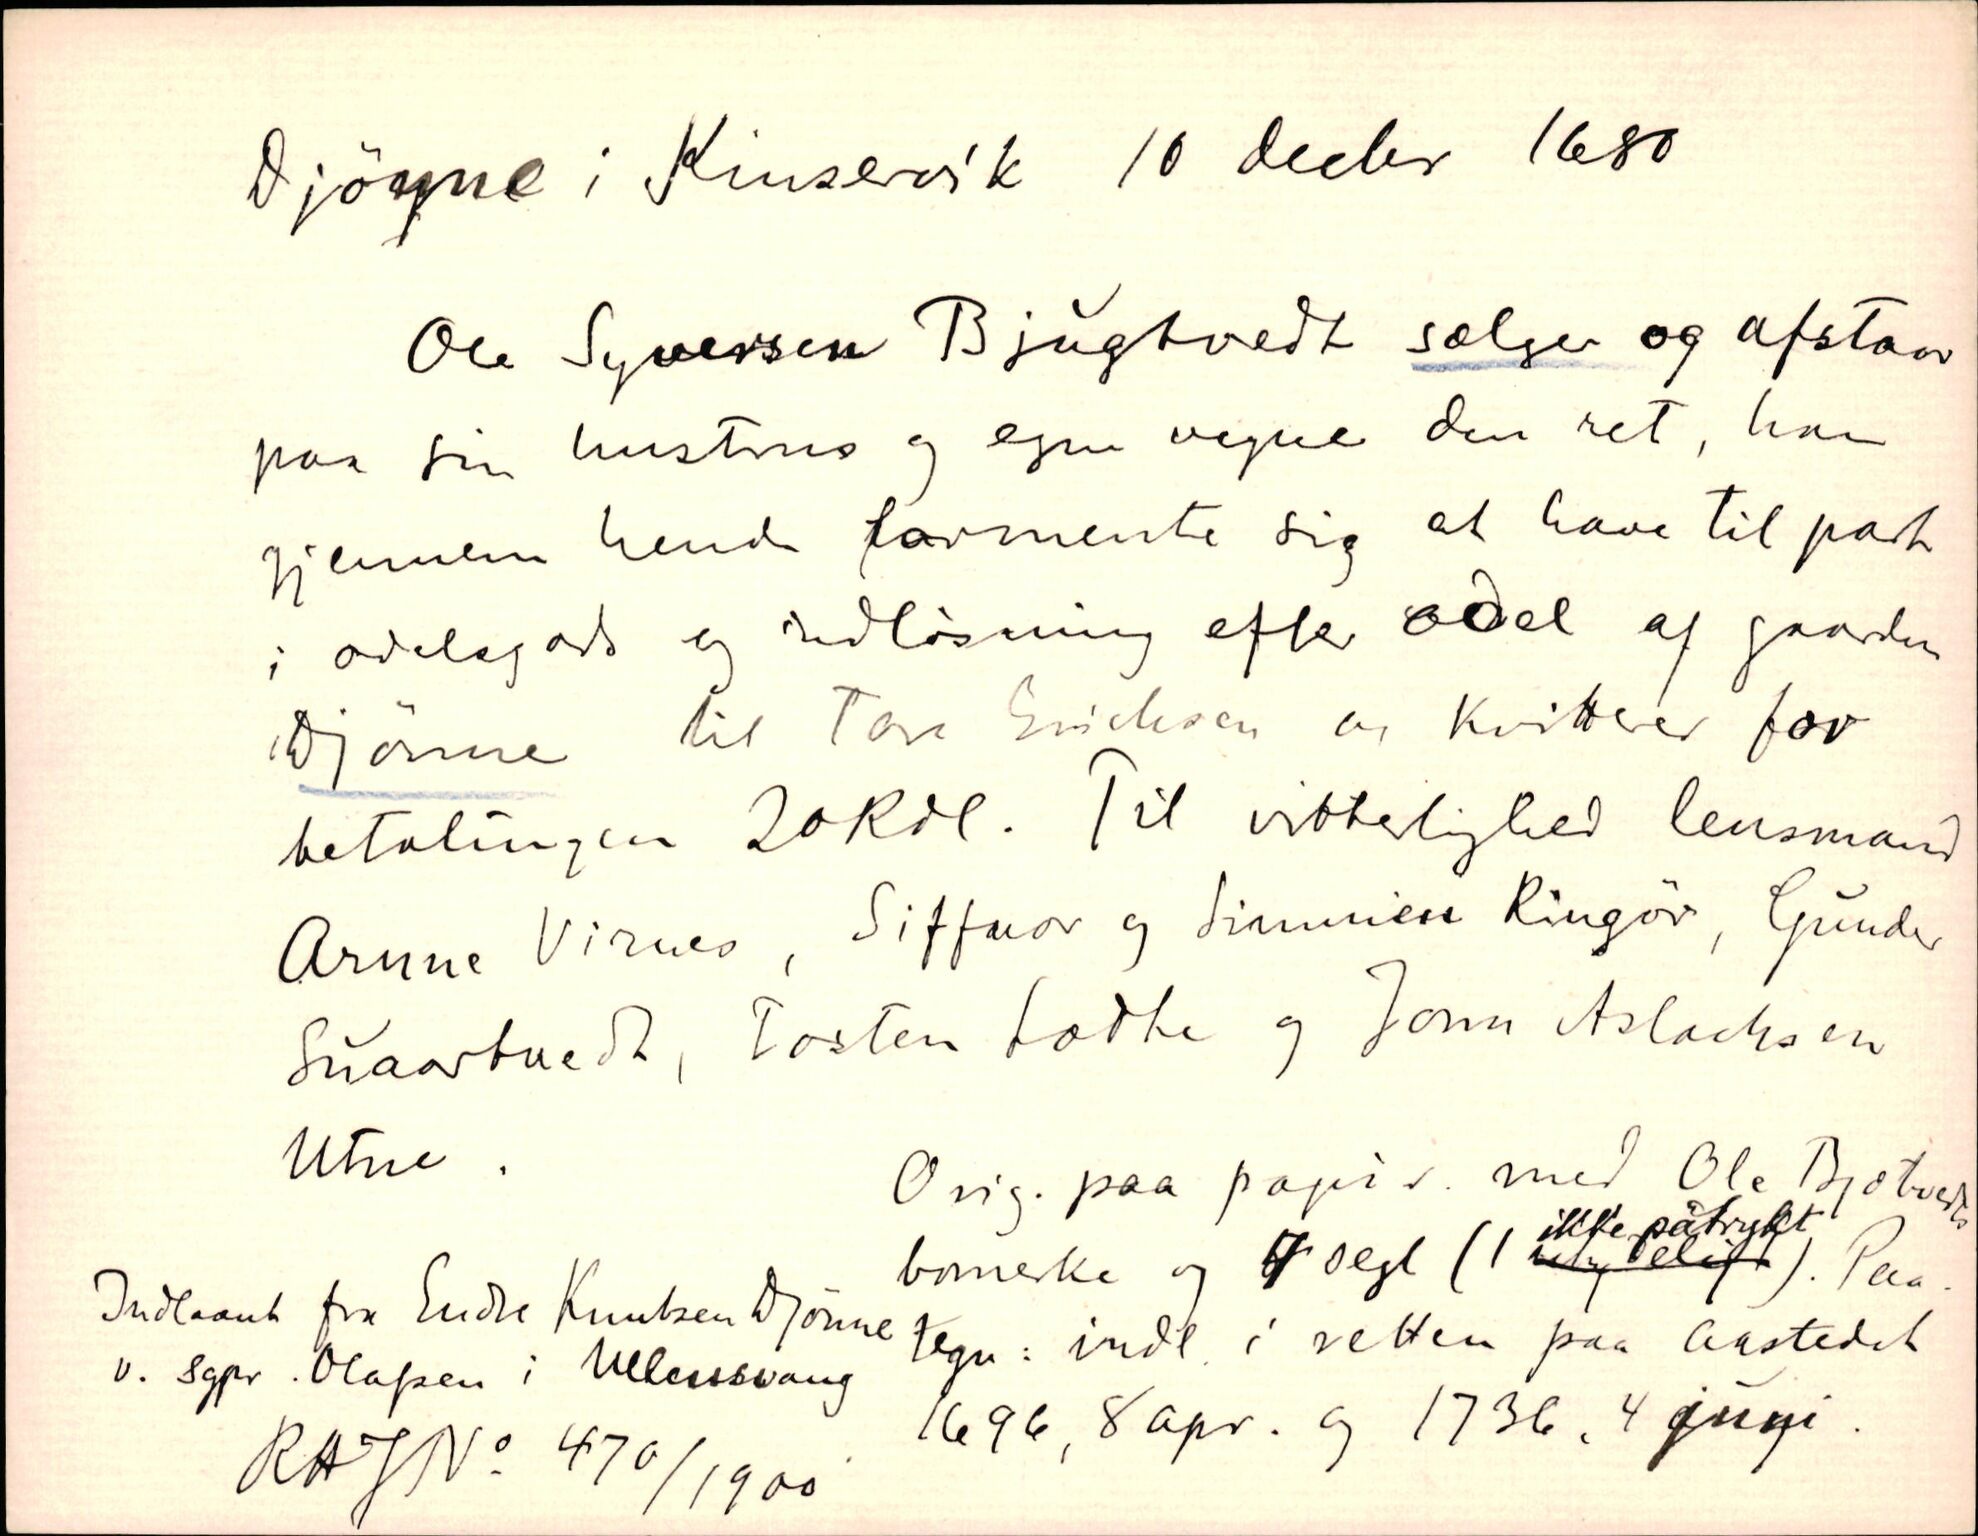 Djönne i Kinservik 10 decbr 1680
Ole Syversen Bjügtvedt sælger og afstaar
paa sin hustrus og egne vegne den ret, han
gjennem hende formente sig at have til part
i odelsgods og indløsning efter odel af gaarden
Djönne til Tore Erichsen og kvitterer for
betalingen 20 Rdl. Til vitterlighed lensmand
Arnne Virnes, Siffuor og Simmien Ringör, Gunder
Suaartuedt, Tosten Lodhe og Jonn Aslachsen
Utne.
Orig. paa papir. med Ole Bjotvedts
bomerke og 7 segl (1 ikke påtrykt). Paa-
tegn: indl. i retten paa aastedet
1696, 8 apr. og 1736, 4 juni.
Indlaant fra Endre Knutsen Djönne
v. sgpr. Olafsen i Ullensvang
RA J No 470/1900